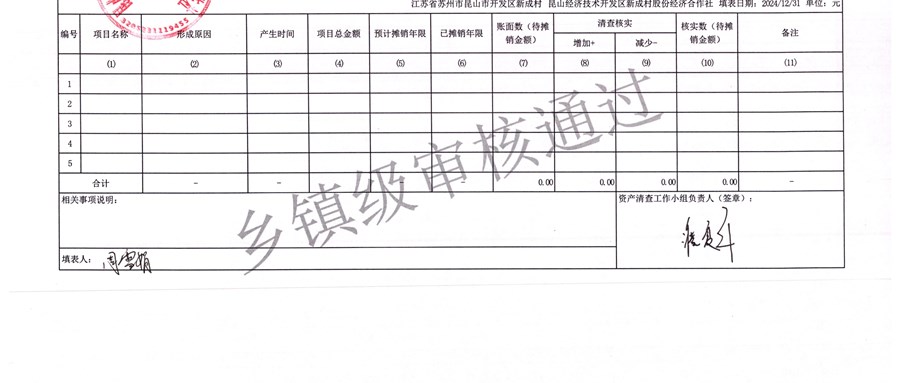 江苏省苏州市昆山市开发区新成村 昆山经济技术开发区新成村股份经济合作社 填表日期：2024/12/31 单位：元
3205231119455
编号 项目名称 形成原因 产生时间 项目总金额 预计摊销年限 已摊销年限 账面数（待摊销金额） 清查核实 核实数（待摊销金额） 备注
增加+ 减少-
(1) (2) (3) (4) (5) (6) (7) (8) (9) (10) (11)
1
2
3
4
5
合计 - - - - - 0.00 0.00 0.00 0.00 -
相关事项说明： 资产清查工作小组负责人（签章）：
填表人： 周雪娟
乡镇级审核通过